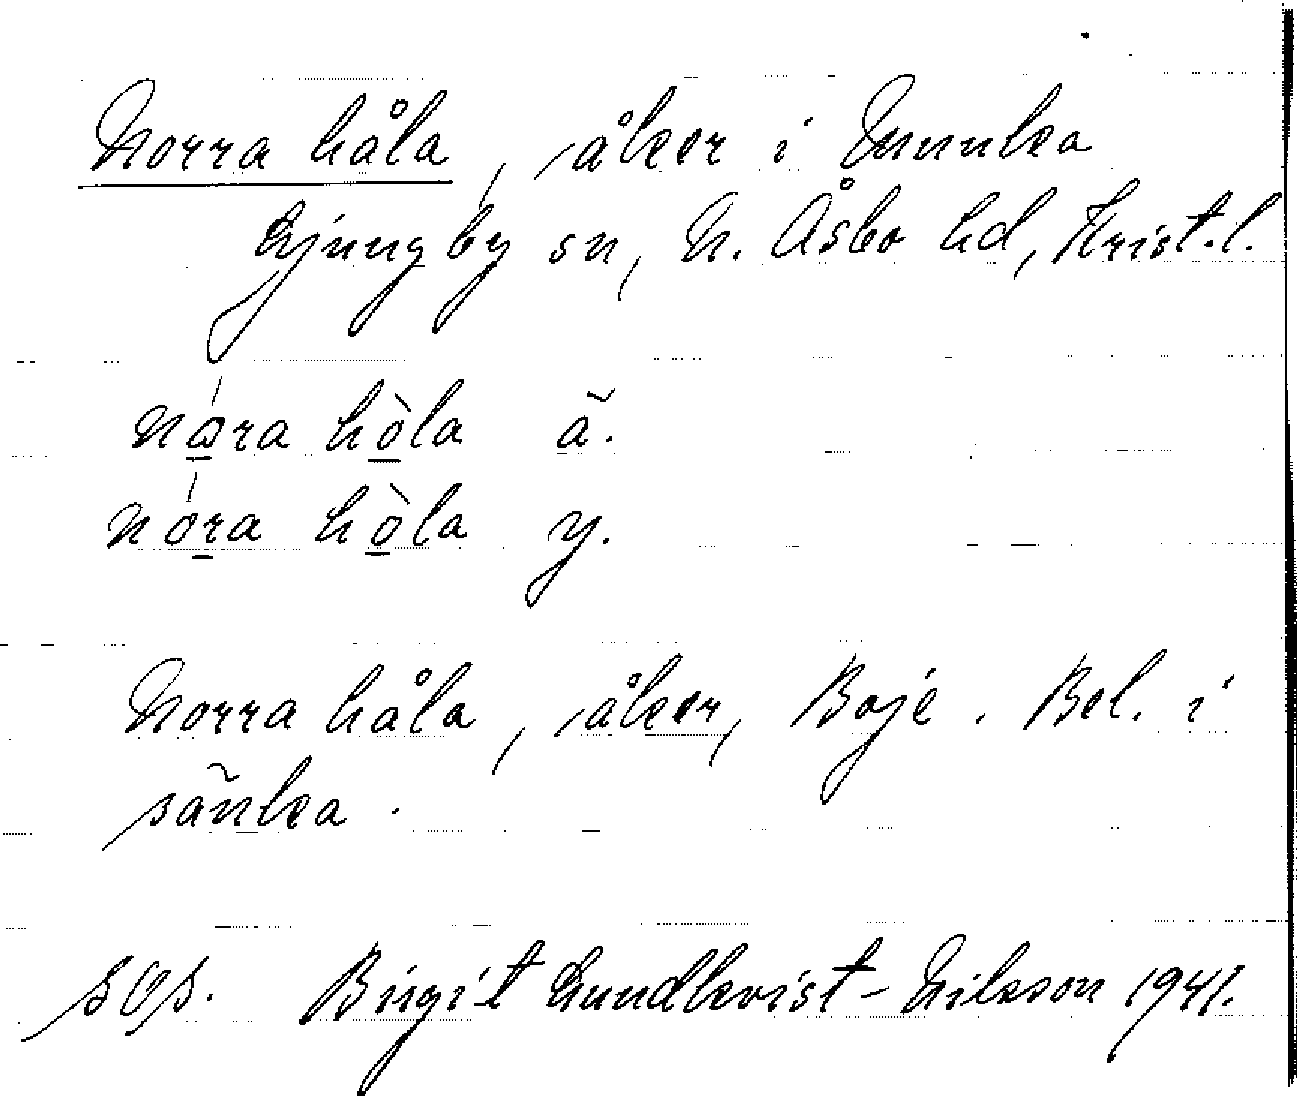 Norra håla, åker i Munnka
Ljungby sn, N. Åsbo hd, Krist.l.
nǻra hòla ã.
nóra hòla y.
Norra håla, åker, Bojé. Bel. i
sãnka.
SOS. Birgit Lundkvist-Nilsson 1941.